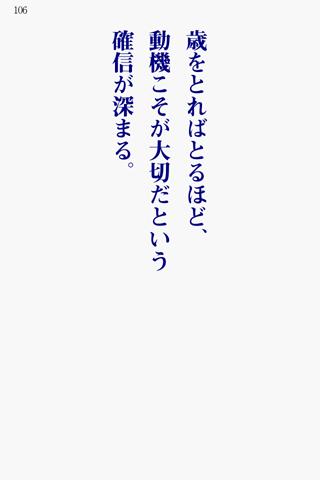 106
歳をとればとるほど、
動機こそが大切だという
確信が深まる。